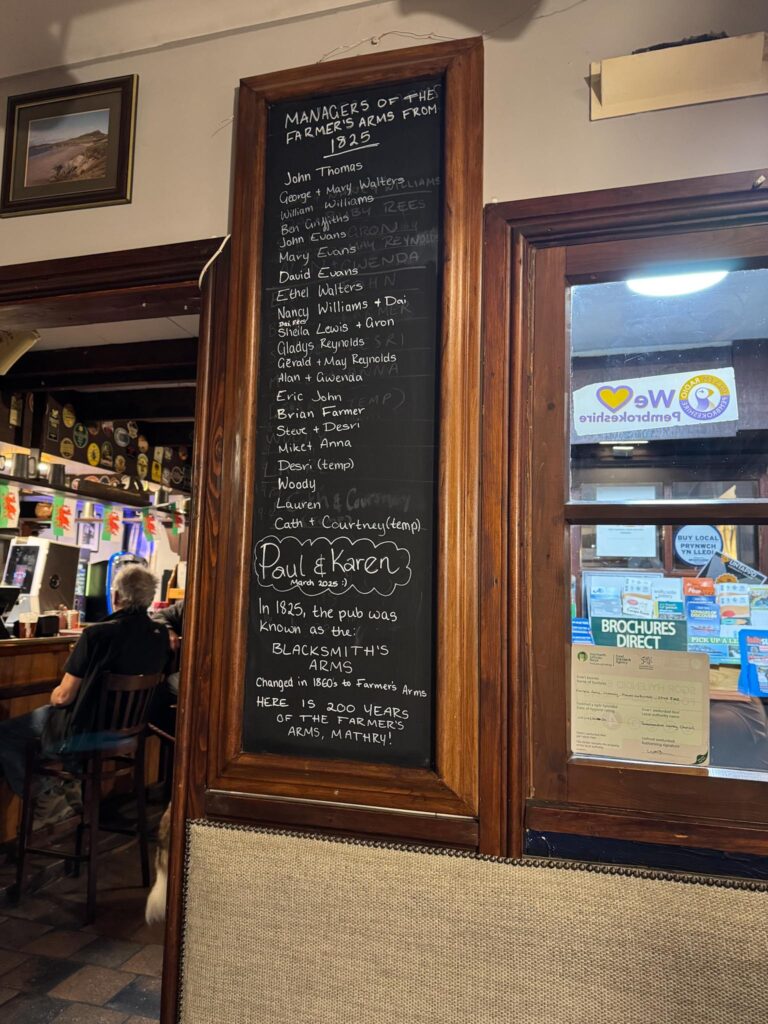 MANAGERS OF THE
FARMER'S ARMS FROM
1825
John Thomas
George + Mary Walters
William Williams
Ben Griffiths
John Evans
Mary Evans
David Evans
Ethel Walters
Nancy Williams + Dai
Sheila Lewis + Gron
Gladys Reynolds
Gerald + May Reynolds
Alan + Gwenda
Eric John
Brian Farmer
Steve + Desri
Mike + Anna
Desri (temp)
Woody
Lauren
Cath + Courtney (temp)
Paul & Karen
March 2025 :)
In 1825, the pub was
known as the:
BLACKSMITH'S
ARMS
Changed in 1860's to Farmer's Arms
HERE IS 200 YEARS
OF THE FARMER'S
ARMS, MATHRY!
We
Pembrokeshire
PURE WEST RADIO
PEMBROKESHIRE
BUY LOCAL
PRYNWCH
YN LLEOL
BROCHURES
DIRECT
PICK UP A